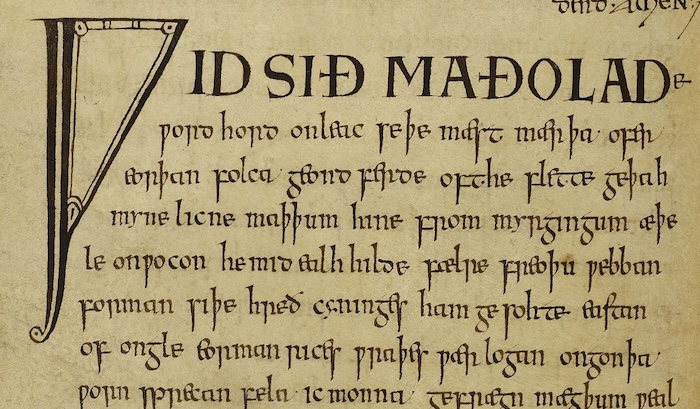 AMEN:
ǷID SIÐ MAÐOLADe
ƿord hord onleac se þe mæst mærþa ofer
eorþan folca· geond ferde oft he flette geþah
mynelicne maþþum hine from myrgingum æþe
le onƿocon he mid ealhhilde fælre freoþu ƿebban
forman siþe hreð cyninges ham gesohte eastan
of ongle eormanrices ƿraþes ƿærlogan ongon þa·
ƿorn sprecan fela· ic monna gefrægn mægþum ƿeal